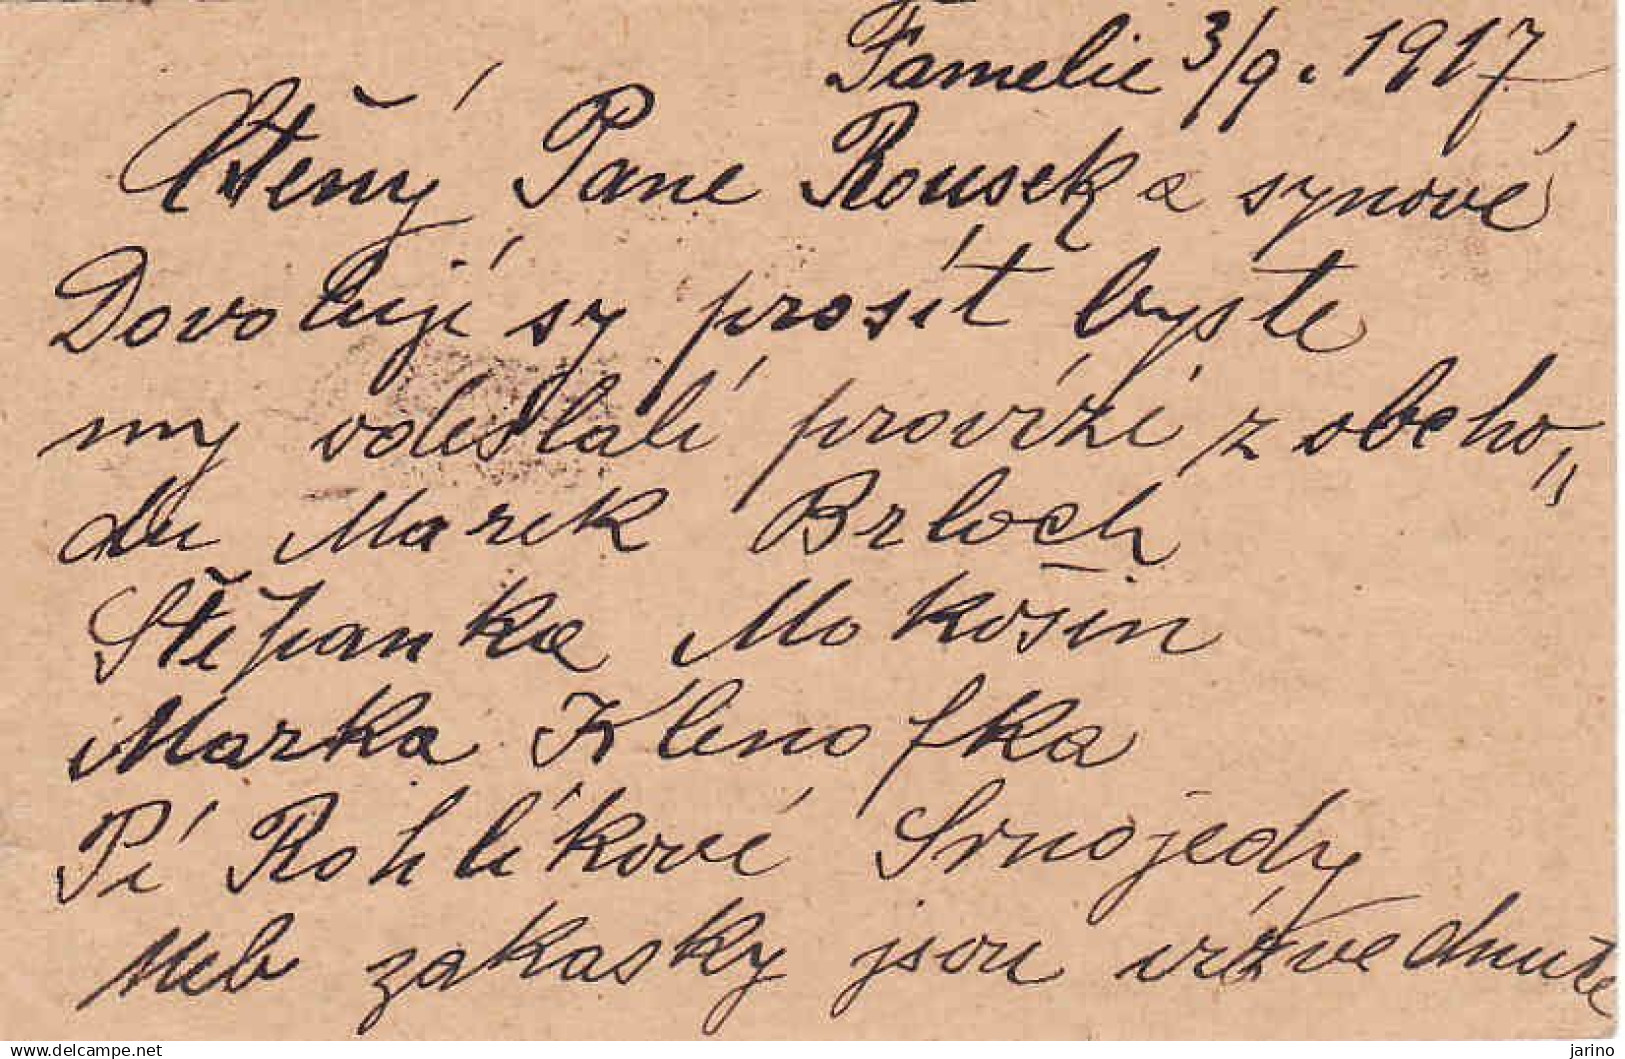 Famelie 3/9. 1917
Ctěný Pane Rousek a synové
Dovoluji sy prosít byste
my odeslalí províží z obcho„
du Marek Brloch
Štěpanka Mokošin
Marka Klenofka
Pí Rohlíkové Srnojedy
Neb zakasky jsou
jarino
www.delcampe.net